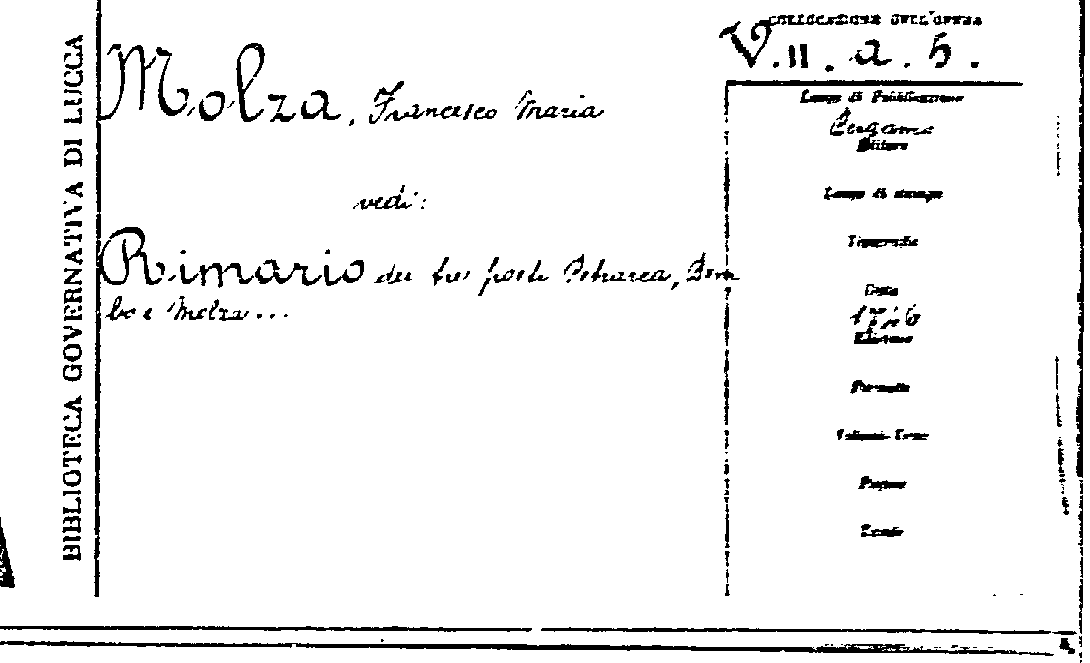 BIBLIOTECA GOVERNATIVA DI LUCCA
Molza, Francesco Maria
vedi:
Rimario dei tre poeti Petrarca, Bem
bo e Molza...
COLLOCAZIONE DELL'OPERA
V. II. a. 5.
Luogo di Pubblicazione
Bergamo
Editore
Luogo di stampa
Tipografia
Data
Edizione
Formato
Volumi-Tomo
Pagine